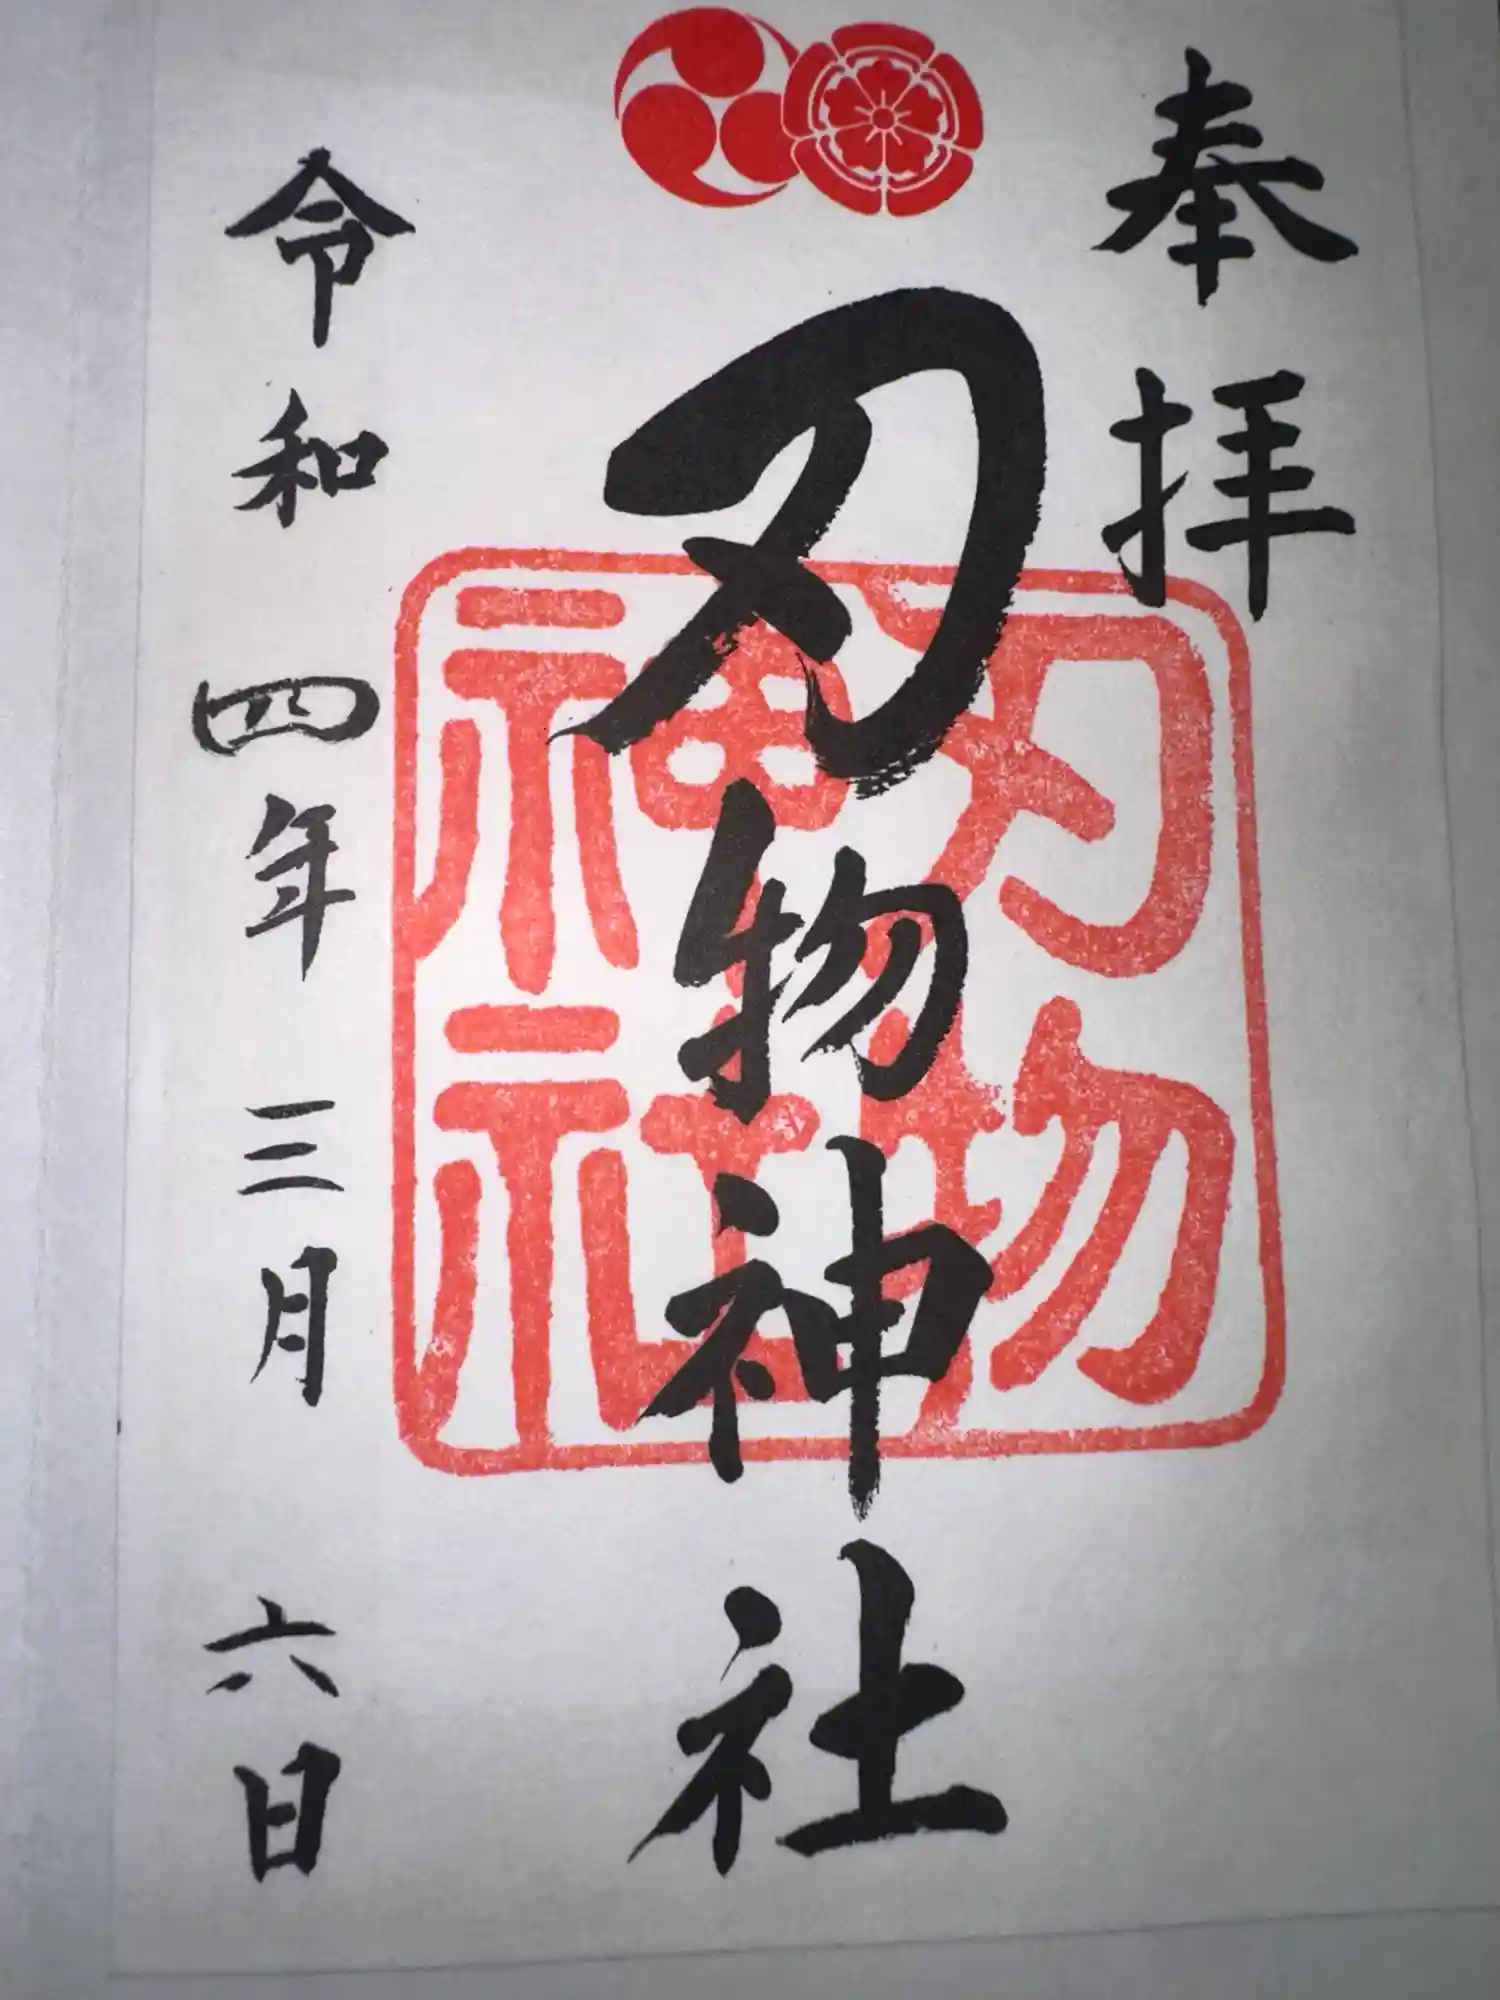 奉拝
刃物神社
刃物神社
令和四年三月六日